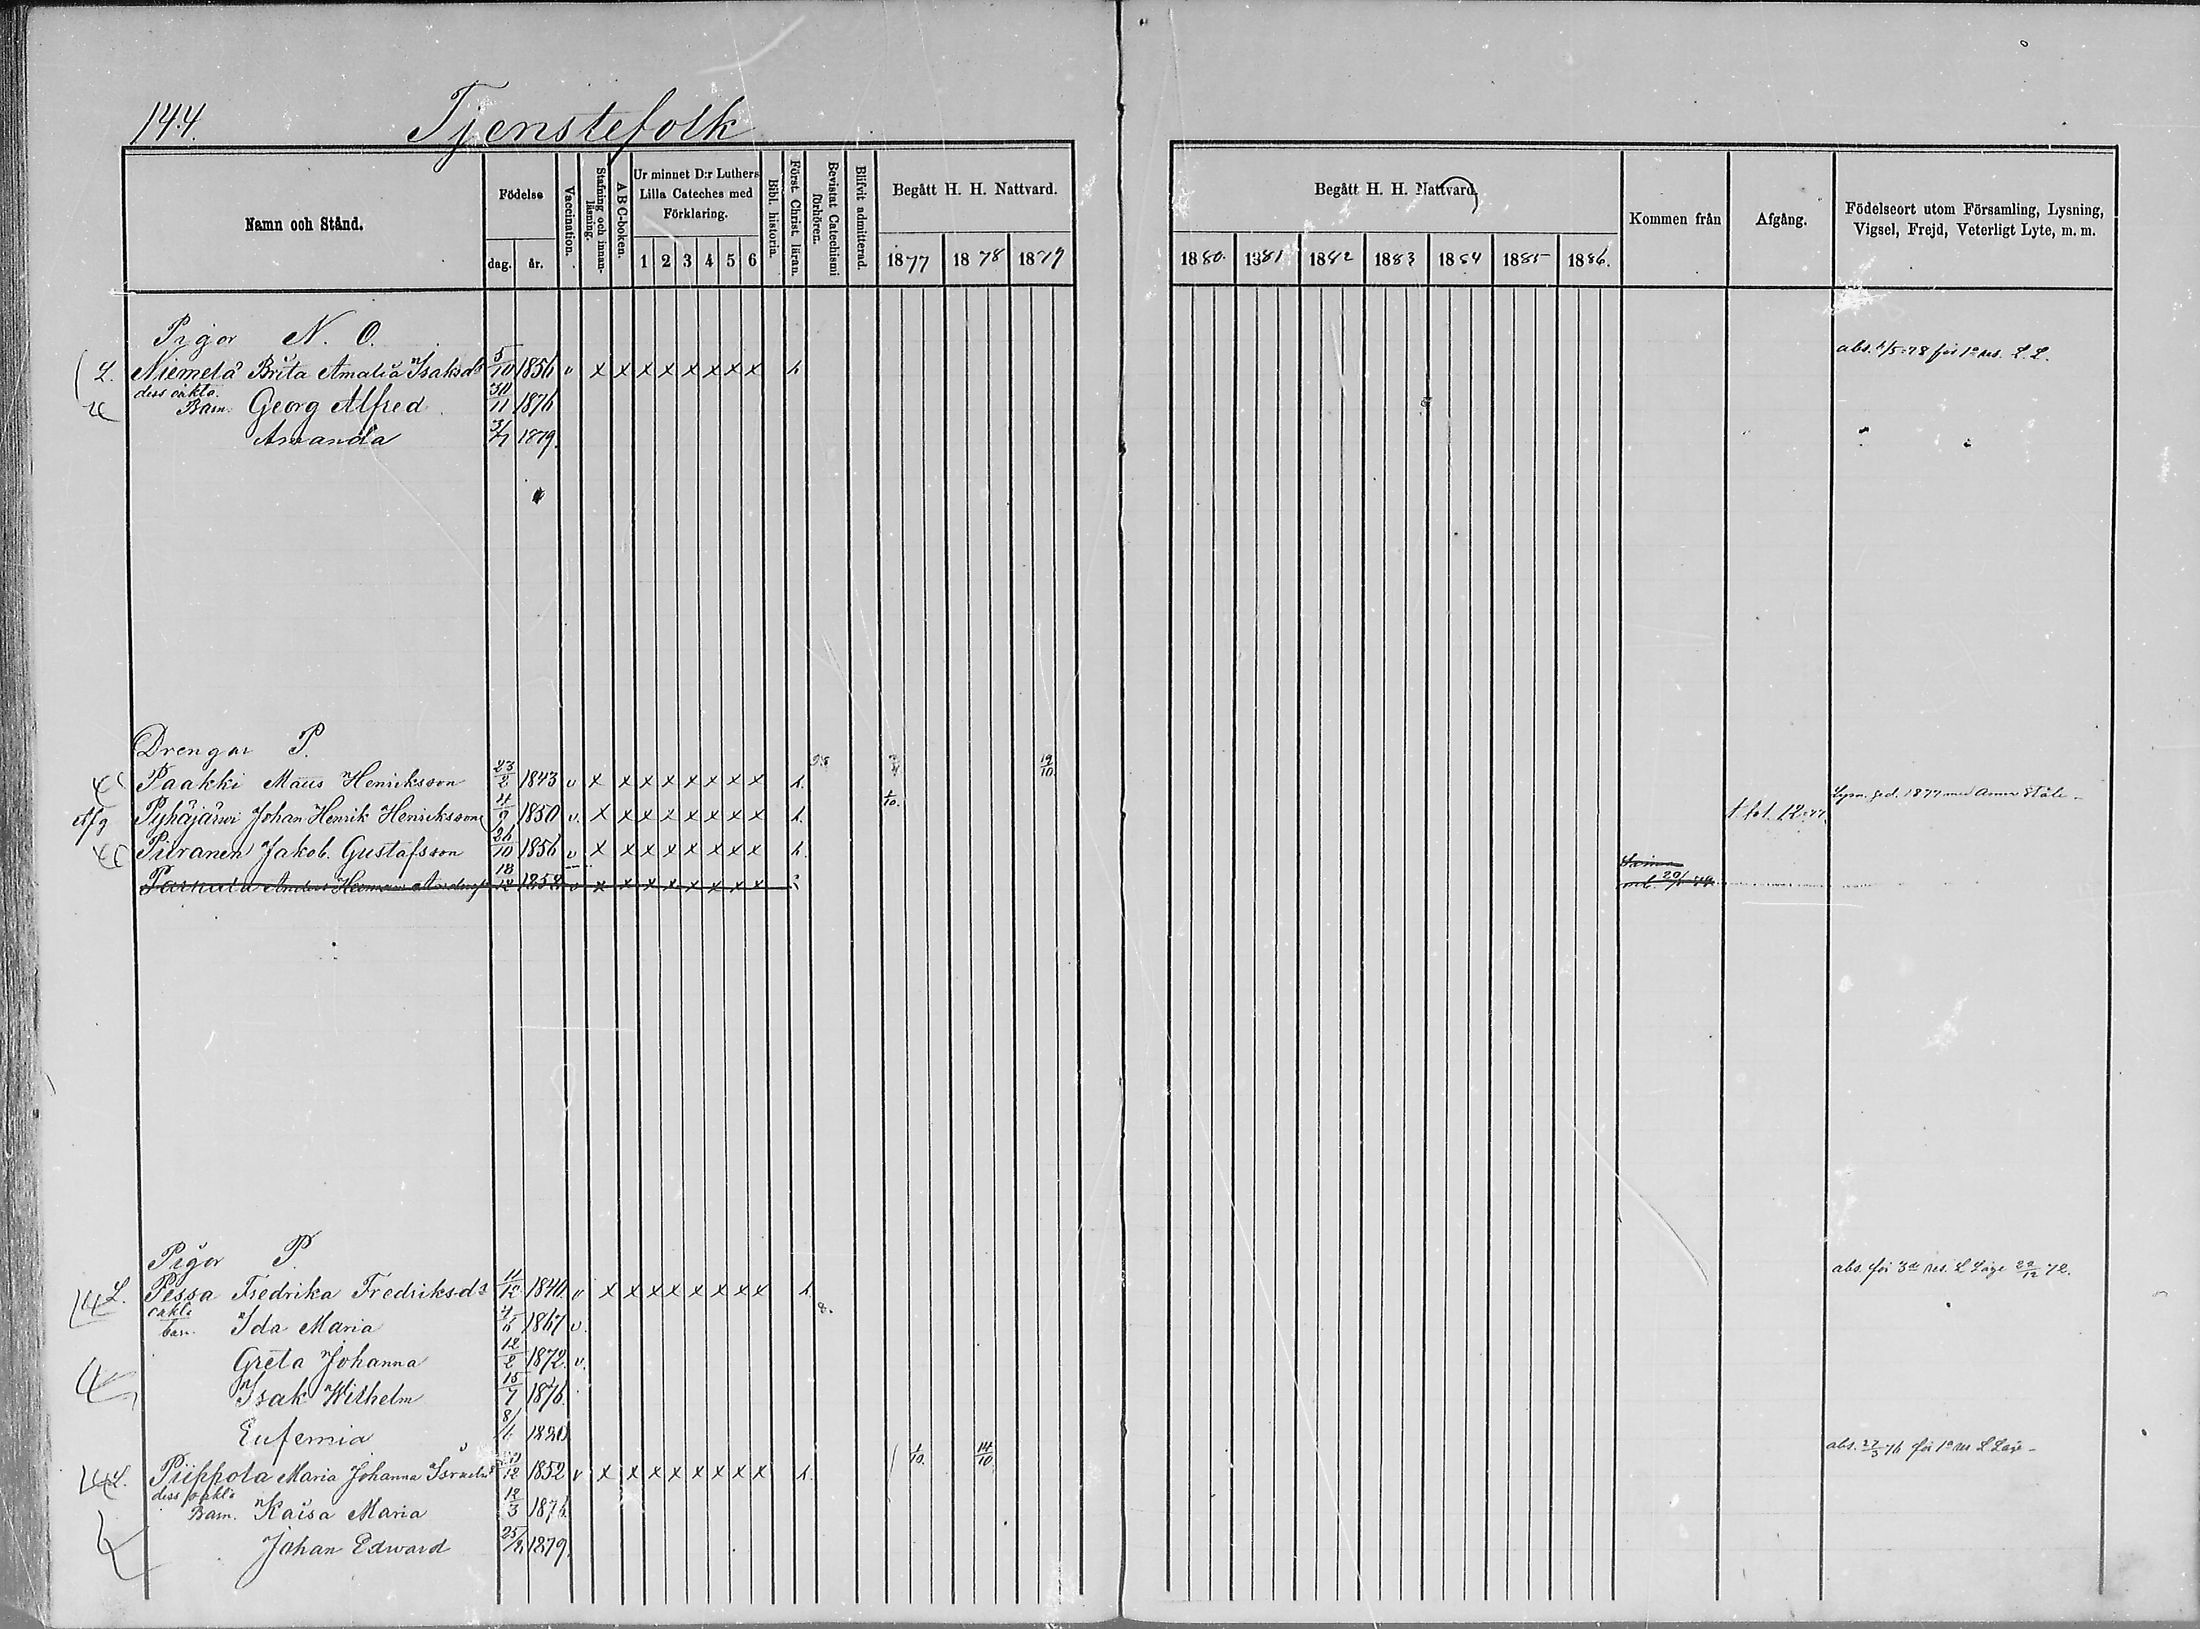 144.
Tjenstefolk
Namn och Stånd.
Födelse
dag. år.
Vaccination.
Stafning och innanläsning.
ABC-boken.
Ur minnet D:r Luthers Lilla Cateches med Förklaring.
1 2 3 4 5 6
Bibl. historia.
Först. Christ. läran.
Bevistat Catechismi förhörer.
Blifvit admitterad.
Begått H. H. Nattvard.
1877 1878 1879
Begått H. H. Nattvard.
1880. 1881 1882 1883 1884 1885 1886.
Kommen från
Afgång.
Födelseort utom Församling, Lysning, Vigsel, Frejd, Veterligt Lyte, m. m.
Pigor N. O.
L. Niemelä Brita Amalia Isaksdr 5/10 1856 v x x x x x x x x
dess oäkta
Barn. Georg Alfred 30/11 1876
Amanda 1879.
Drengar P.
Paakki Maus Henriksson 23/2 1843 v x x x x x x x x 19/10.
Afg Pyhäjärvi Johan Henrik Henriksson 4/9 1850 v. x x x x x x x x 1/10. Lysn. 1877 med Anna
Piiranen Jakob. Gustafsson 26/10 1856 v x x x x x x x x
18/12 1852 v x x x x x x x x
Pigor P.
L. Pessa Fredrika Fredriksdr 11/12 1840 v x x x x x x x x abs. för 3e res. L Läge 22/12 72.
oäkta
barn. Ida Maria 1867 v.
Greta Johanna 12/2 1872. v.
Isak Wilhelm 15/7 1876.
Eufemia 1880
L. Piippola Maria Johanna Israelsd 1852 v x x x x x x x x 1/10. 14/10
dess oäkta
Barn. Kaisa Maria 12/3 1876
Johan Edward 1879.